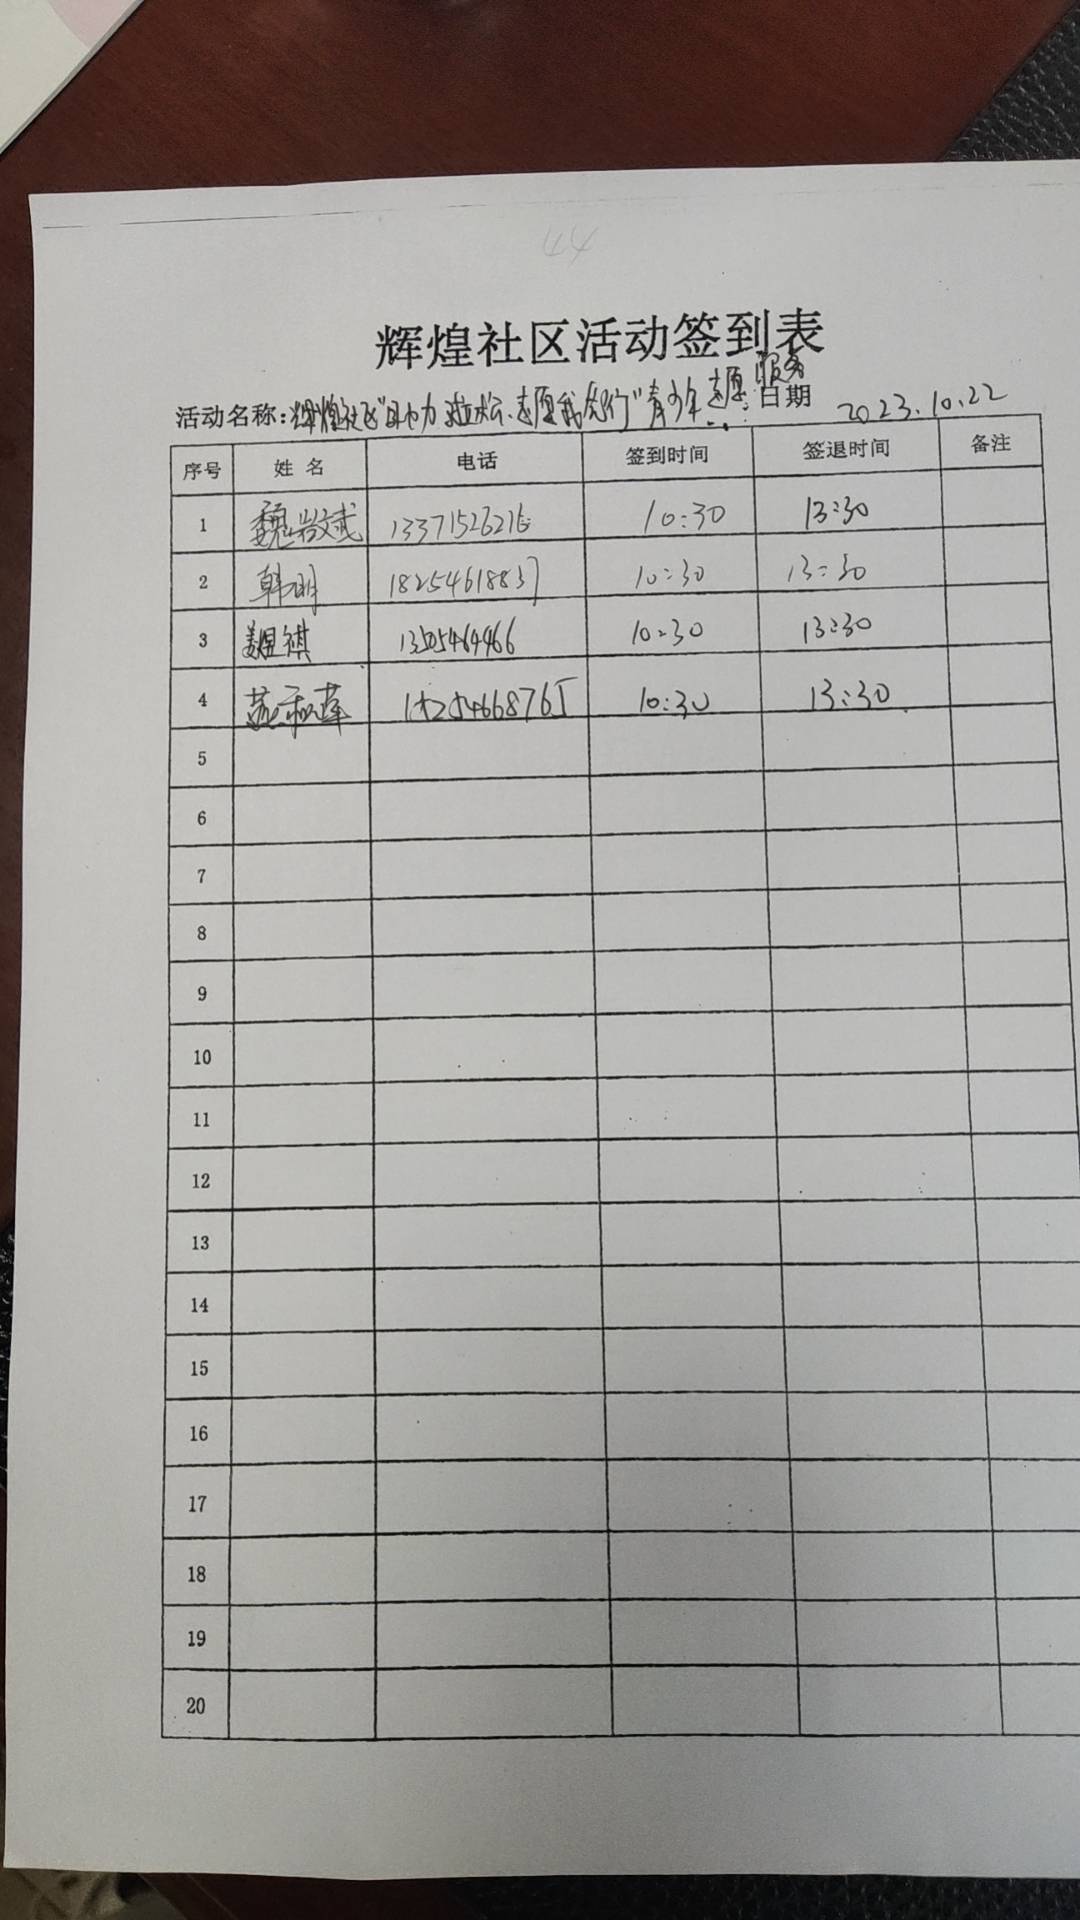 44
辉煌社区活动签到表
活动名称：辉煌社区"助力 志愿我先行"青少年志愿服务 日期 2023.10.22
序号 姓名 电话 签到时间 签退时间 备注
1 魏 13371526216 10:30 13:30
2 韩明 18254618837 10:30 13:30
3 祺 10:30 13:30
4 10:30 13:30
5
6
7
8
9
10
11
12
13
14
15
16
17
18
19
20